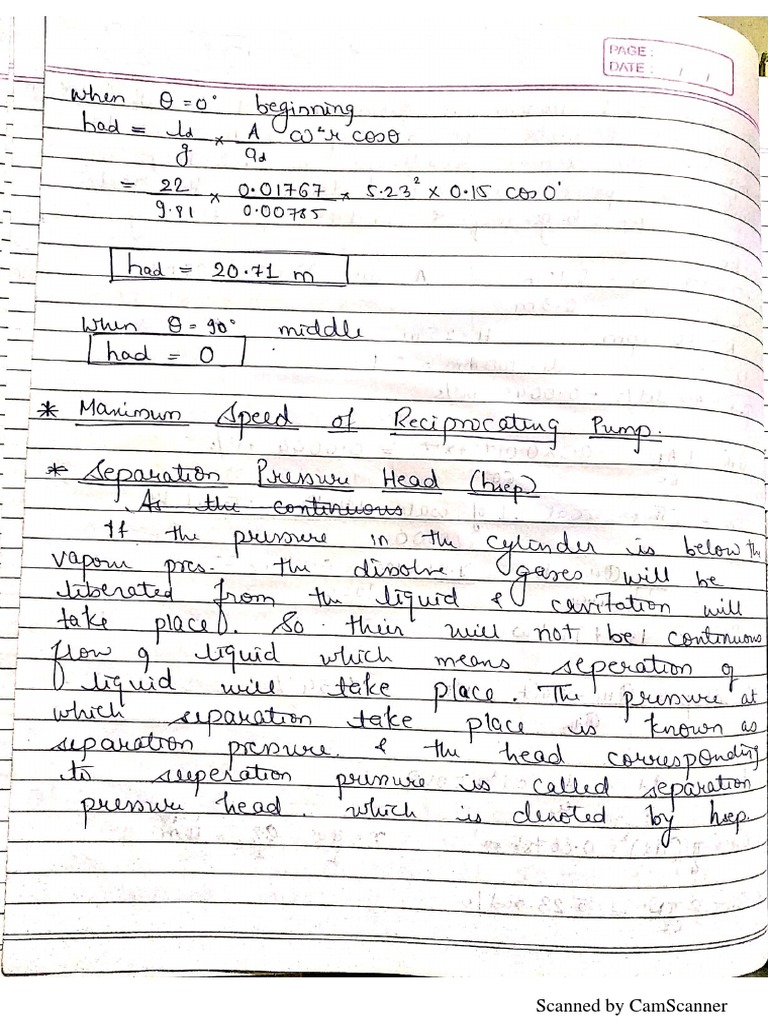 PAGE :
DATE : / /
when θ = 0° beginning
had = ld/g × A/ad ω²r cosθ
= 22/9.81 × 0.01767/0.00785 × 5.23² × 0.15 cos 0°
had = 20.71 m
when θ = 90° middle
had = 0
* Maximum Speed of Reciprocating Pump.
* Separation Pressure Head (hsep)
As the continuous
If the pressure in the cylinder is below the
vapour pres. the dissolve gases will be
liberated from the liquid & cavitation will
take place. So their will not be continuous
flow of liquid which means seperation of
liquid will take place. The pressure at
which separation take place is known as
separation pressure. & the head corresponding
to seeperation pressure is called separation
pressure head. which is denoted by hsep.
Scanned by CamScanner